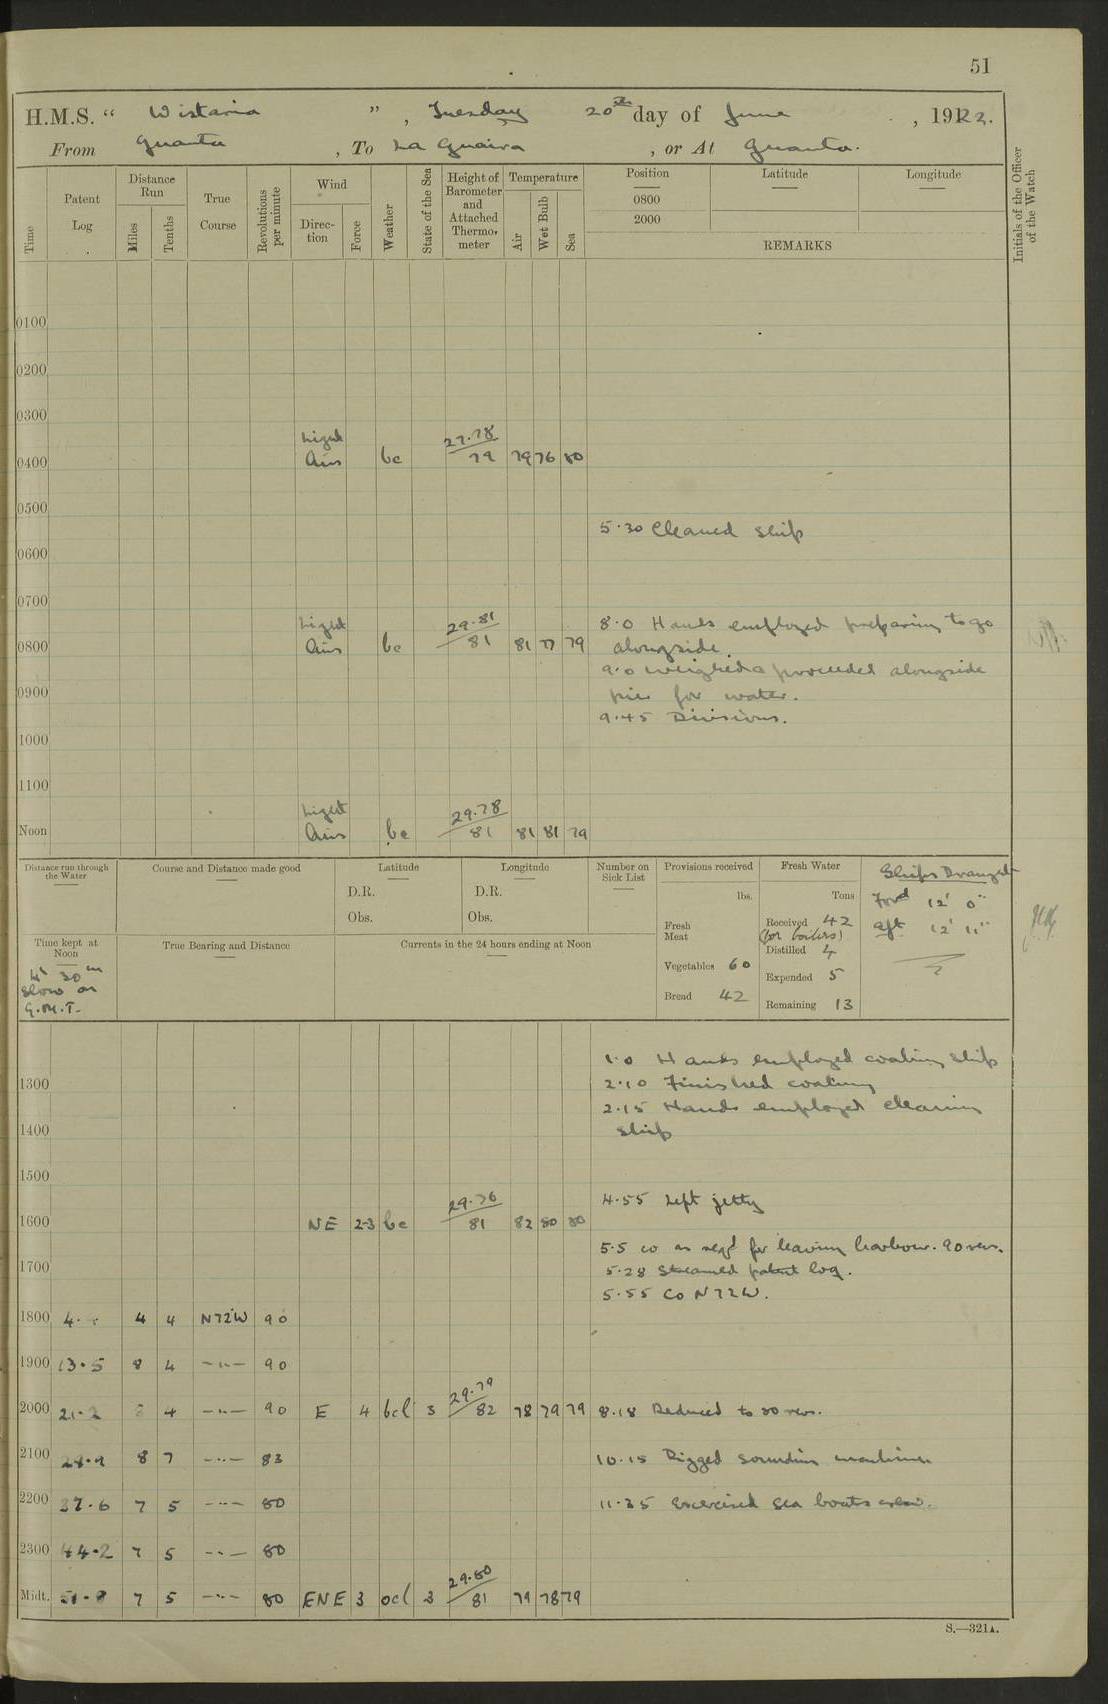 51
H.M.S. “ Wistaria ”, Tuesday 20th day of June, 1922.
From Guanta, To La Guaira, or At Guanta.
Time
Patent Log
Distance Run
Miles
Tenths
True Course
Revolutions per minute
Wind
Direction
Force
Weather
State of the Sea
Height of Barometer and Attached Thermometer
Temperature
Air
Wet Bulb
Sea
Position
Latitude
Longitude
0800
2000
REMARKS
Initials of the Officer of the Watch
0100
0200
0300
Light 29.78
0400 Airs bc 79 79 76 80
0500
5.30 Cleaned ship
0600
0700
Light 29.81 8.0 Hands employed preparing to go
0800 Airs bc 81 81 77 79 alongside.
9.0 Weighed & proceeded alongside
0900 pier for water.
9.45 Divisions.
1000
1100
Light 29.78
Noon Airs bc 81 81 81 79
Distance run through the Water
Course and Distance made good
Latitude
D.R.
Obs.
Longitude
D.R.
Obs.
Number on Sick List
Provisions received
lbs.
Fresh Meat
Vegetables 60
Bread 42
Fresh Water
Tons
Received 42
(for boilers)
Distilled 4
Expended 5
Remaining 13
Ships Draught
Ford 12' 0"
Aft 12' 11"
Time kept at Noon
4h 30m
slow on
G.M.T.
True Bearing and Distance
Currents in the 24 hours ending at Noon
1.0 Hands employed coaling ship
1300 2.10 Finished coaling
2.15 Hands employed cleaning
1400 ship
1500
29.76 4.55 Left jetty
1600 NE 2-3 bc 81 82 80 80
5.5 Co as reqd for leaving harbour. 90 revs.
1700 5.28 Streamed patent log.
5.55 Co N72W.
1800 4. 4 4 N72W 90
1900 13.5 8 4 -"- 90
29.79
2000 21.2 4 -"- 90 E 4 bcl 3 82 78 79 79 8.18 Reduced to 80 revs.
2100 8 7 -"- 83 10.15 Rigged sounding machine
2200 37.6 7 5 -"- 80 11.35 Exercised sea boats crew.
2300 44.2 7 5 -"- 80
29.80
Midt. 7 5 -"- 80 ENE 3 ocl 3 81 79 78 79
S.—321A.